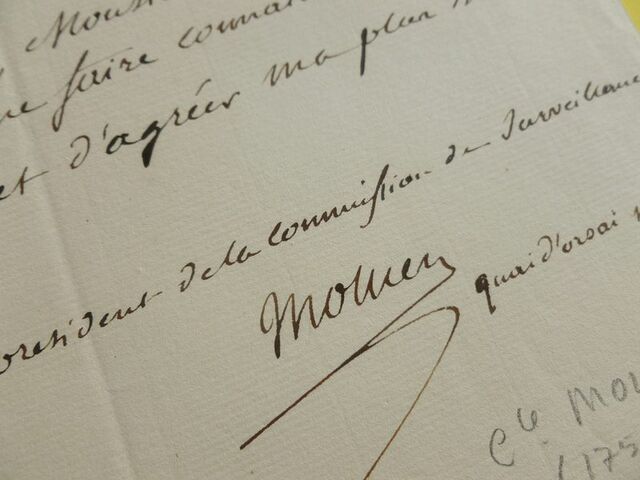 Mous
faire connai
et d'agréer ma plac
president de la Commission de Surveillance
Mollien
quai d'orsai
Cte Mol
(175